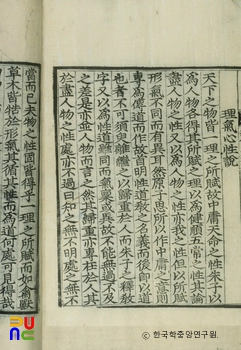 理氣心性說
天下之物皆一理之所賦故中庸天命之性朱子以
爲人物各得其所賦之理以爲健順五常之性其論
盡人物之性又以爲人物之性亦我之性但以所賦
形氣不同而有異耳然原子思所以作中庸之意則
專爲傳道而作故首明性道敎之名義而後卽以道
也者不可須臾離繼之以歸重於人而朱子之釋敎
字又以爲性道雖同而氣稟或異故不能無過不及
之差是亦並人物而言之然其歸重亦專在於人其
於盡人物之性亦不過曰知之無不明處之無不
當而已夫物之性固皆得乎一理之所賦而如禽獸
草木皆牿於形氣其循其性而爲道何處可見得哉
PUNC
ⓒ한국학중앙연구원.